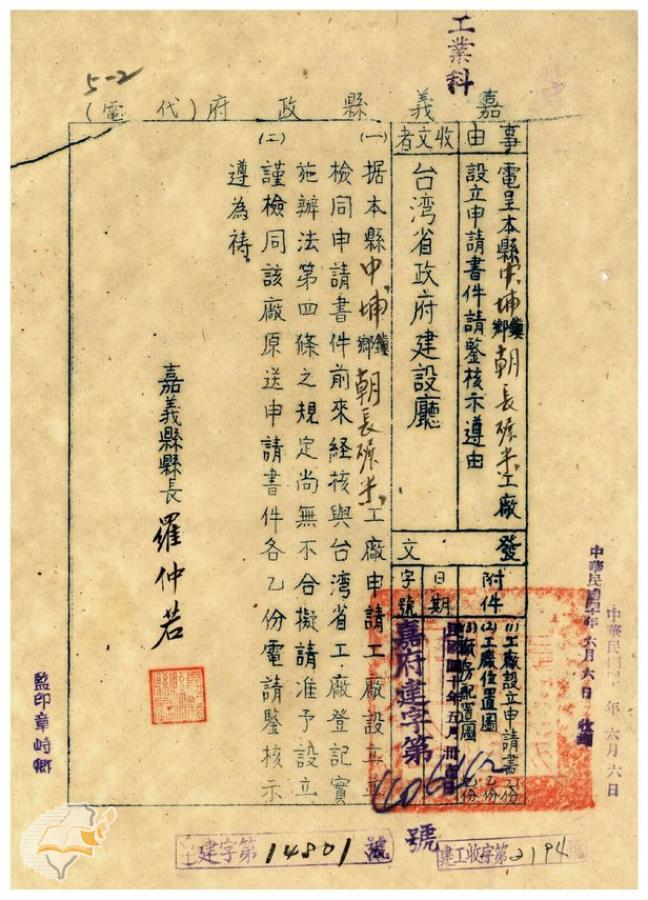 工業科
5-2
嘉義縣政府(代電)
事由
電呈本縣中埔鄉鎮朝長碾米工廠
設立申請書件請鑒核示遵由
收文者
台湾省政府建設廳
發文
附件
(1)工廠設立申請書乙份
(2)工廠位置圖乙份
(3)廠房配置圖乙份
日期
字號
嘉府建字第
號
(一)据本縣中埔鄉鎮朝長碾米工廠申請工廠設立並
檢同申請書件前來経核與台湾省工廠登記實
施辦法第四條之規定尚無不合擬請准予設立
(二)謹檢同該廠原送申請書件各乙份電請鑒核示
遵為禱。
嘉義縣縣長羅仲若
監印章峙鄉
中華民國四十年六月六日收
年六月六日
建字第14801號
建工收字第2194號